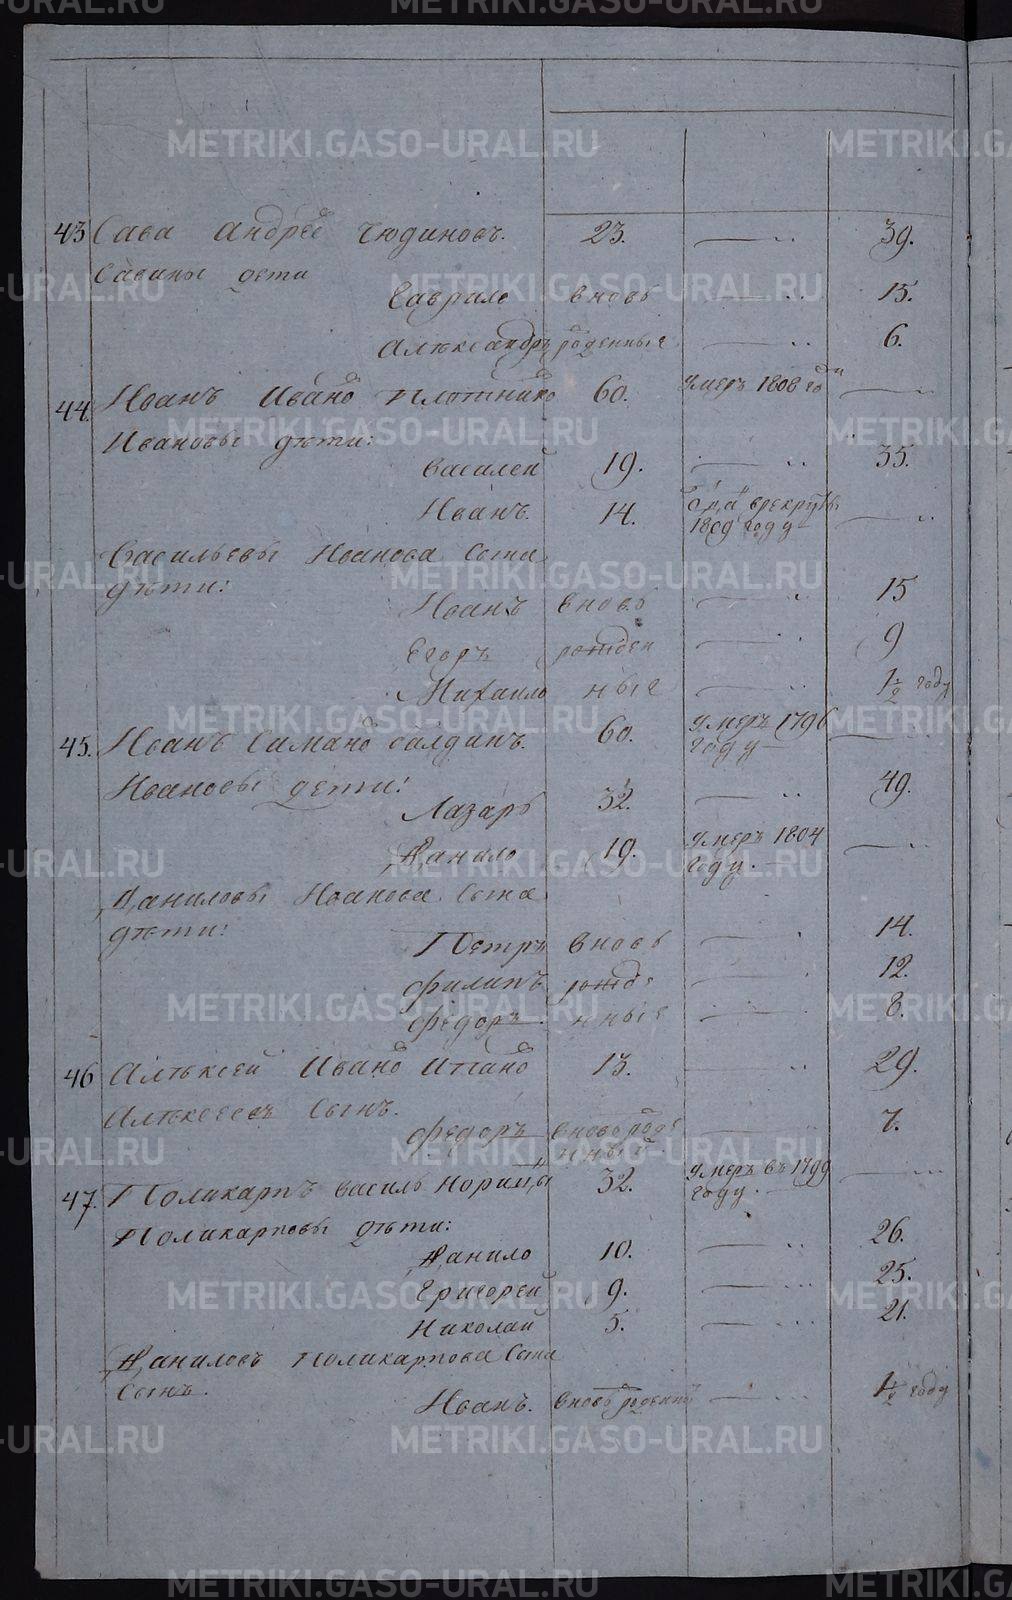 43 Сава Андрее Чюдиновъ. 23. 39.
Савины дети
Гаврило вновь 15.
Алѣксандръ роденныя 6.
44. Иванъ Ивано Плотнико 60. умеръ 1808 году
Ивановы дѣти:
Василей 19. 35.
Иванъ. 14. врекруты
1809 году
Васильевы Иванова Сына
дѣти:
Иванъ вновь 15
Егоръ рожден 9
Михаило ныя 1 1/2 году
45. Иванъ Симано Салдинъ. 60. умеръ 1796
году
Ивановы дети:
Лазарь 32. 49.
Данило 19. умеръ 1804
году.
Даниловы Иванова Сына
дѣти:
Петръ вновь 14.
Филипъ рожде 12.
Федоръ нныя 8.
46 Алѣксей Ивано 13. 29.
Алѣксеевъ Сынъ.
Федоръ вновороде 7.
нный
47. Поликарпъ Василь 32. умеръ въ 1799
году.
Поликарповы дѣти:
Данило 10. 26.
Григорей 9. 25.
Николай 5. 21.
Даниловъ Поликарпова Сына
Сынъ.
Иванъ. вновь роденный 1 1/2 году
METRIKI.GASO-URAL.RU